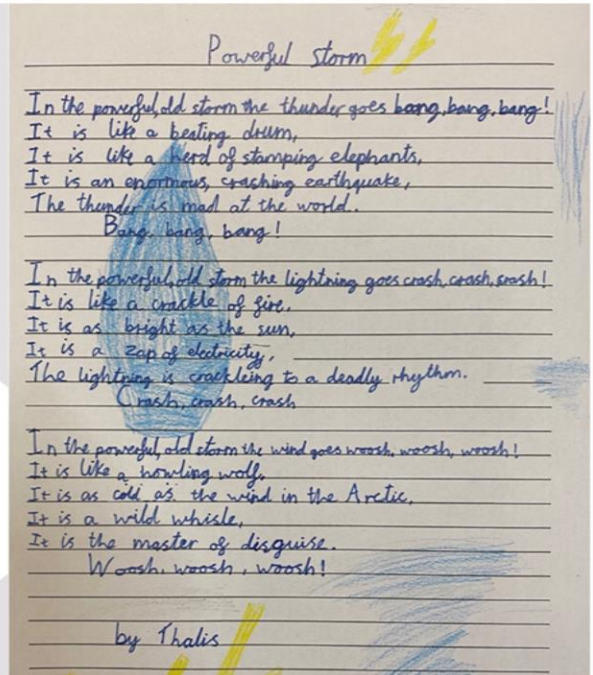 Powerful storm
In the powerful, old storm the thunder goes bang, bang, bang!
It is like a beating drum,
It is like a herd of stamping elephants,
It is an enormous, craching earthquake,
The thunder is mad at the world.
Bang, bang, bang!
In the powerful, old storm the lightning goes crash, crash, crash!
It is like a crackle of fire,
It is as bright as the sun,
It is a zap of electricity,
The lightning is crackleing to a deadly rhythm.
Crash, crash, crash
In the powerful, old storm the wind goes woosh, woosh, woosh!
It is like a howling wolf,
It is as cold as the wind in the Arctic,
It is a wild whisle,
It is the master of disguise.
Woosh, woosh, woosh!
by Thalis